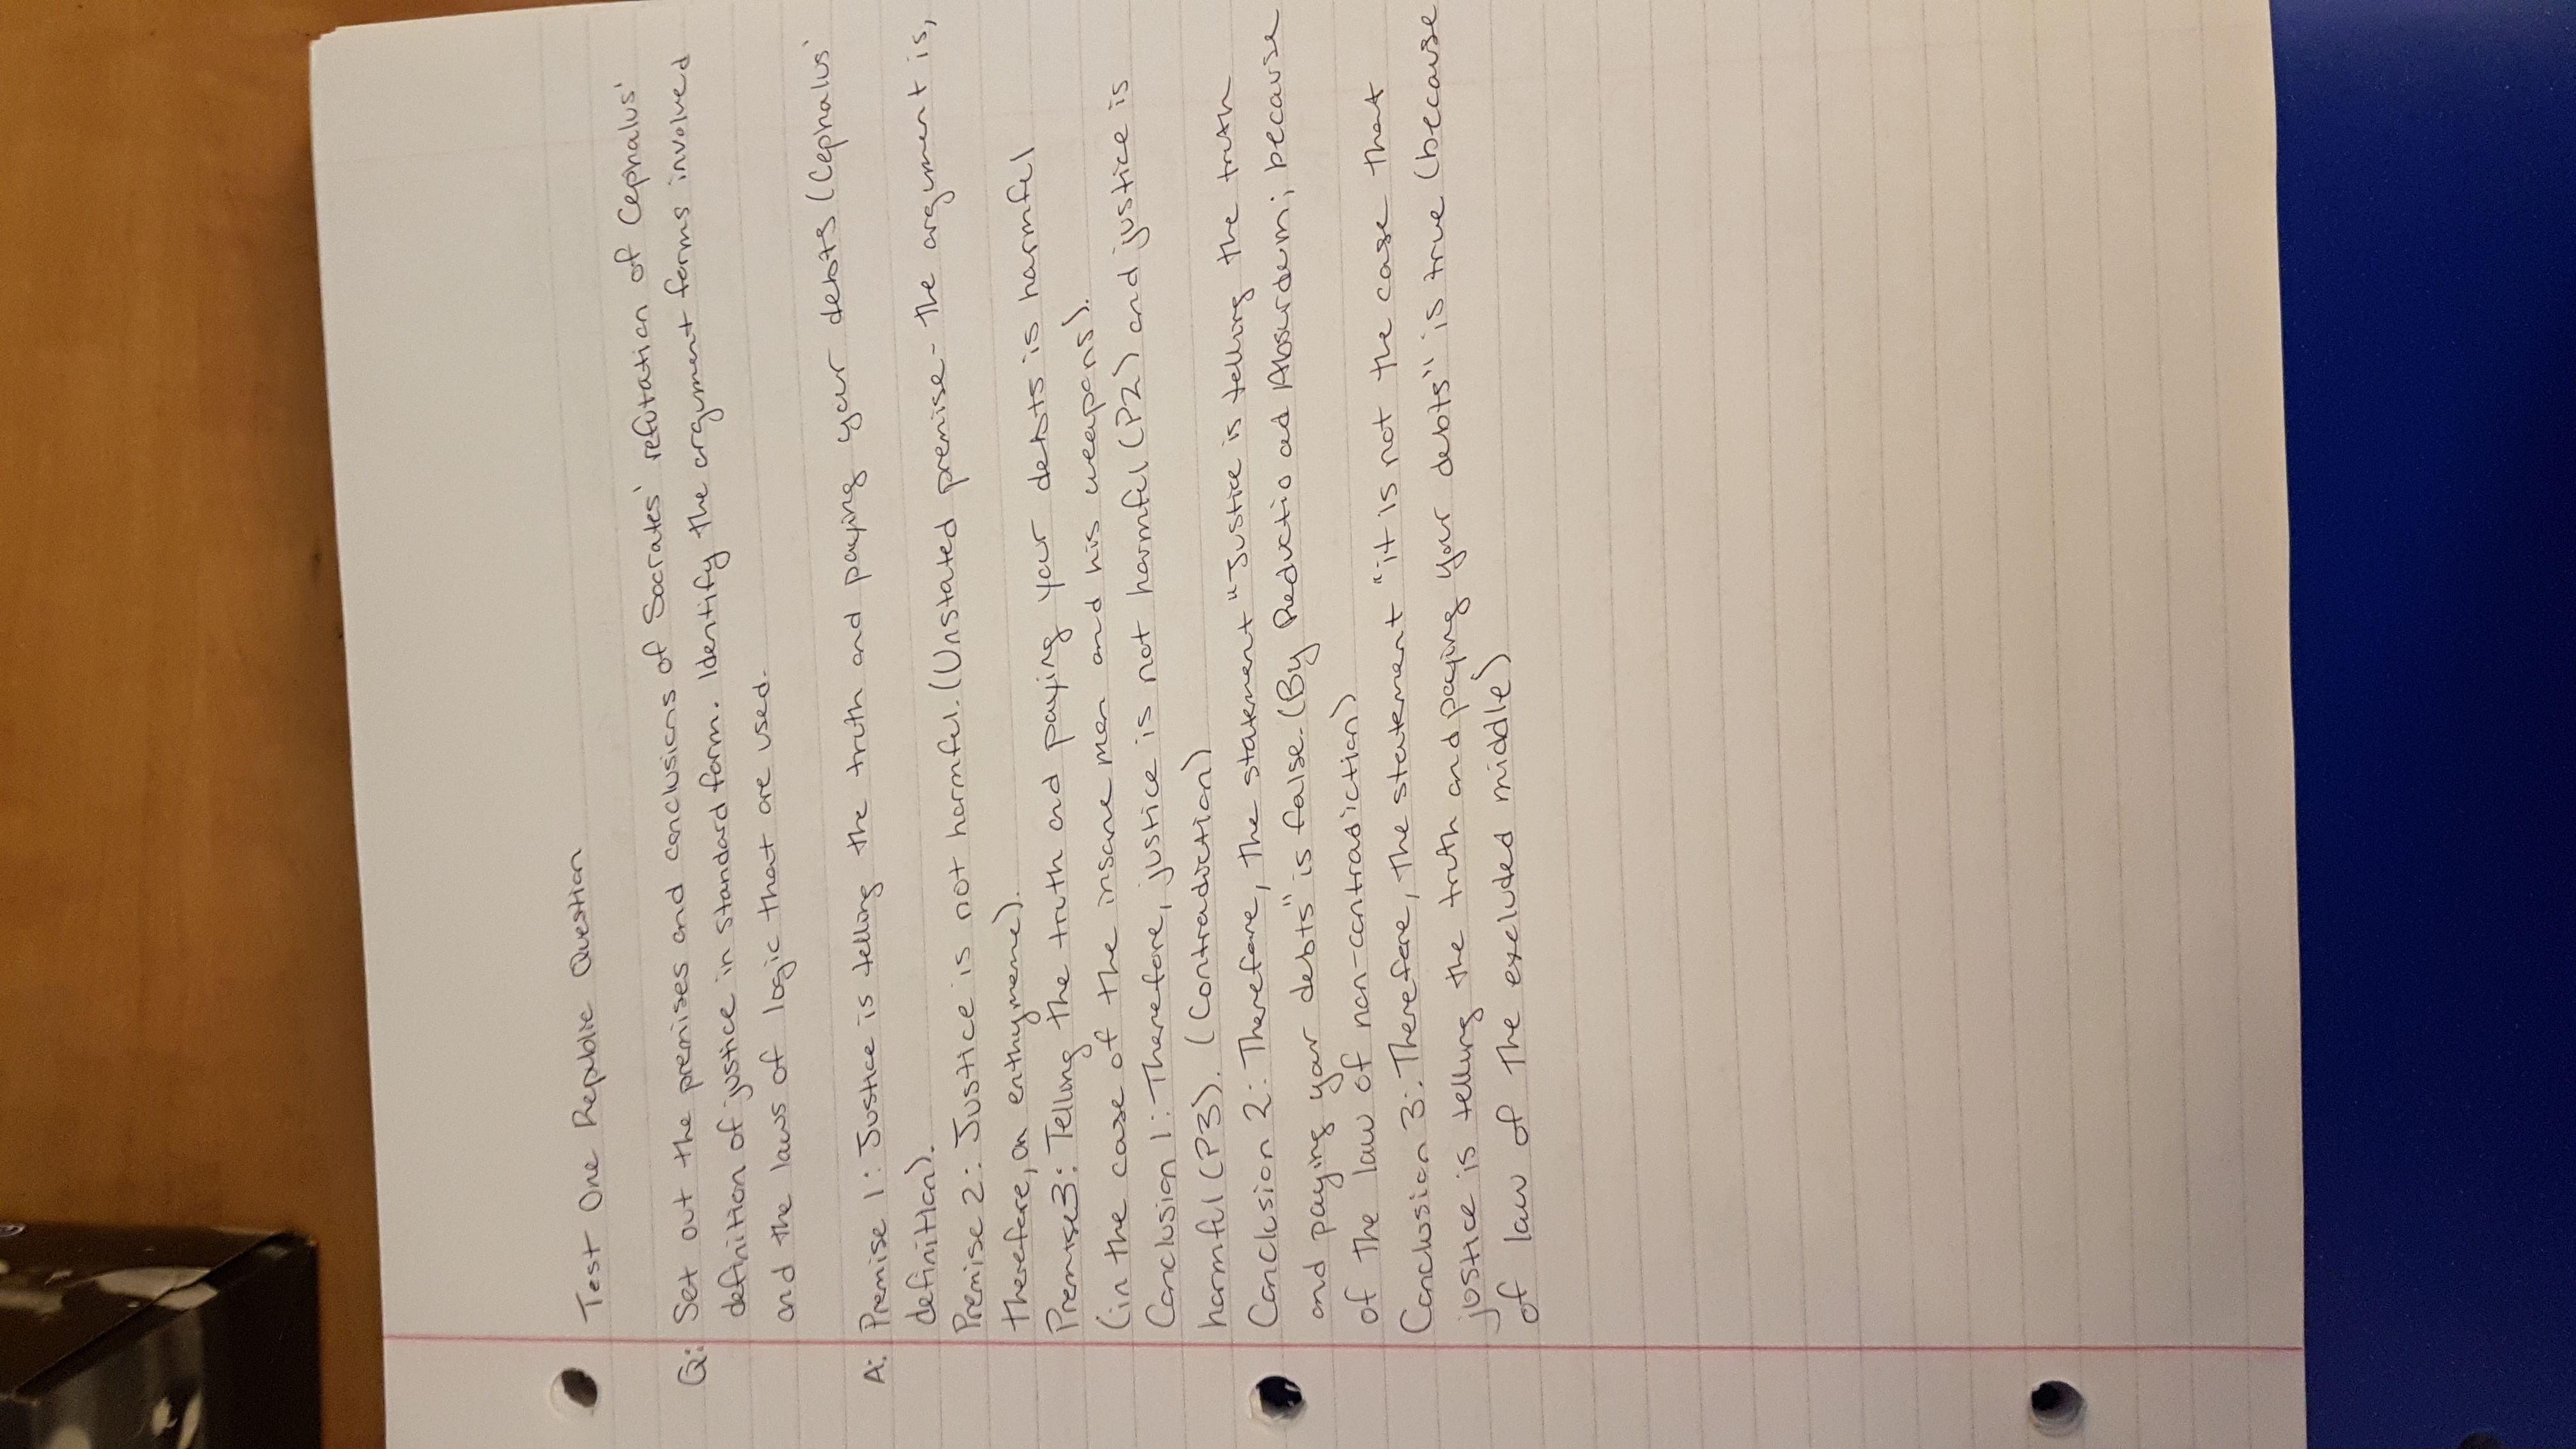 Test One Republic Question
Q: Set out the premises and conclusions of Socrates' refutation of Cephalus'
definition of justice in standard form. Identify the argument forms involved
and the laws of logic that are used.
A: Premise 1: Justice is telling the truth and paying your debts (Cephalus'
definition).
Premise 2: Justice is not harmful. (Unstated premise - the argument is,
therefore, an enthymeme).
Premise 3: Telling the truth and paying your debts is harmful
(in the case of the insane man and his weapons).
Conclusion 1: Therefore, justice is not harmful (P2) and justice is
harmful (P3). (Contradiction)
Conclusion 2: Therefore, the statement "Justice is telling the truth
and paying your debts" is false. (By Reductio ad Absurdum; because
of the law of non-contradiction)
Conclusion 3: Therefore, the statement "it is not the case that
justice is telling the truth and paying your debts" is true (because
of law of the excluded middle)